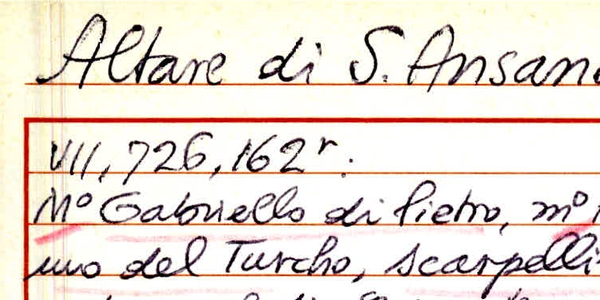 Altare di S. Ansan
VII, 726, 162r.
Mo Gabriello di Pietro, mo
uno del Turcho, scarpelli